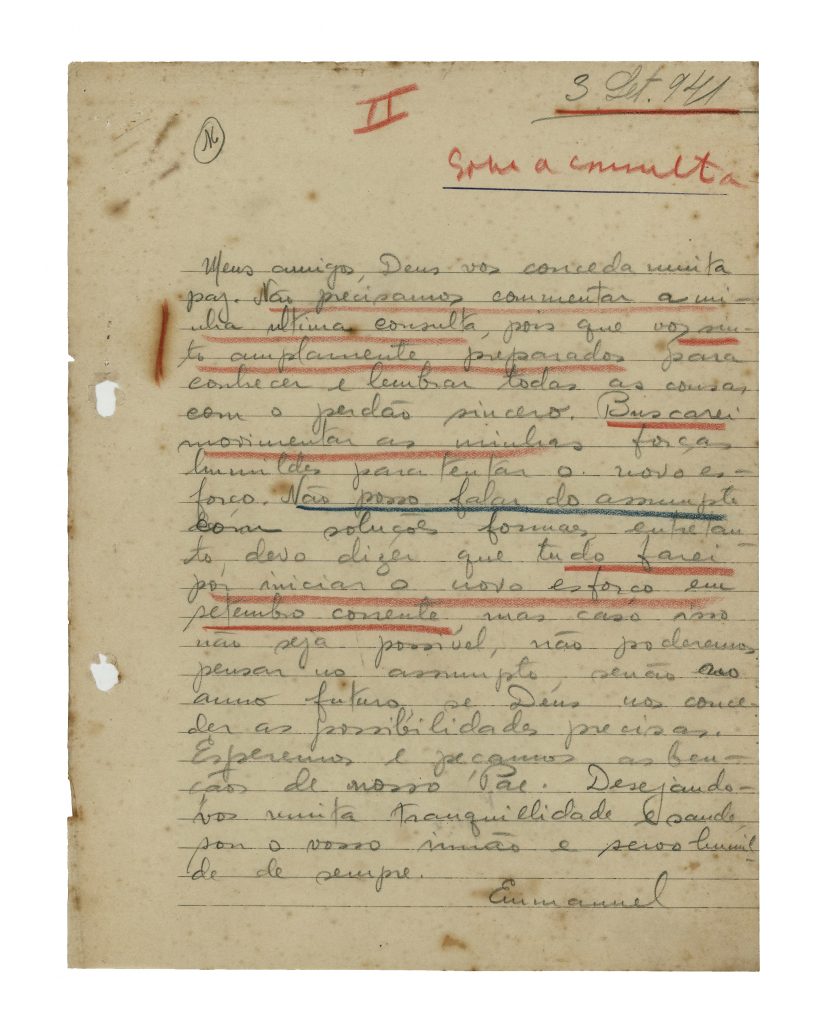 3 Set. 941
II
N
Sobre a consulta
Meus amigos, Deus vos conceda muita
paz. Não precisamos commentar a mi-
nha ultima consulta, pois que vos sin-
to amplamente preparados para
conhecer e lembrar todas as cousas
com o perdão sincero. Buscarei
movimentar as minhas forças
humildes para tentar o novo es-
forço. Não posso falar do assumpto
com soluções formaes, entretan-
to, devo dizer que tudo farei
por iniciar o novo esforço em
setembro corrente, mas caso isso
não seja possivel, não poderemos
pensar no assumpto, senão no
anno futuro, se Deus nos conce-
der as possibilidades precisas.
Esperemos e peçamos as ben-
çãos de nosso Pae. Desejando-
vos muita tranquillidade e saude,
sou o vosso irmão e servo humil-
de de sempre.
Emmanuel